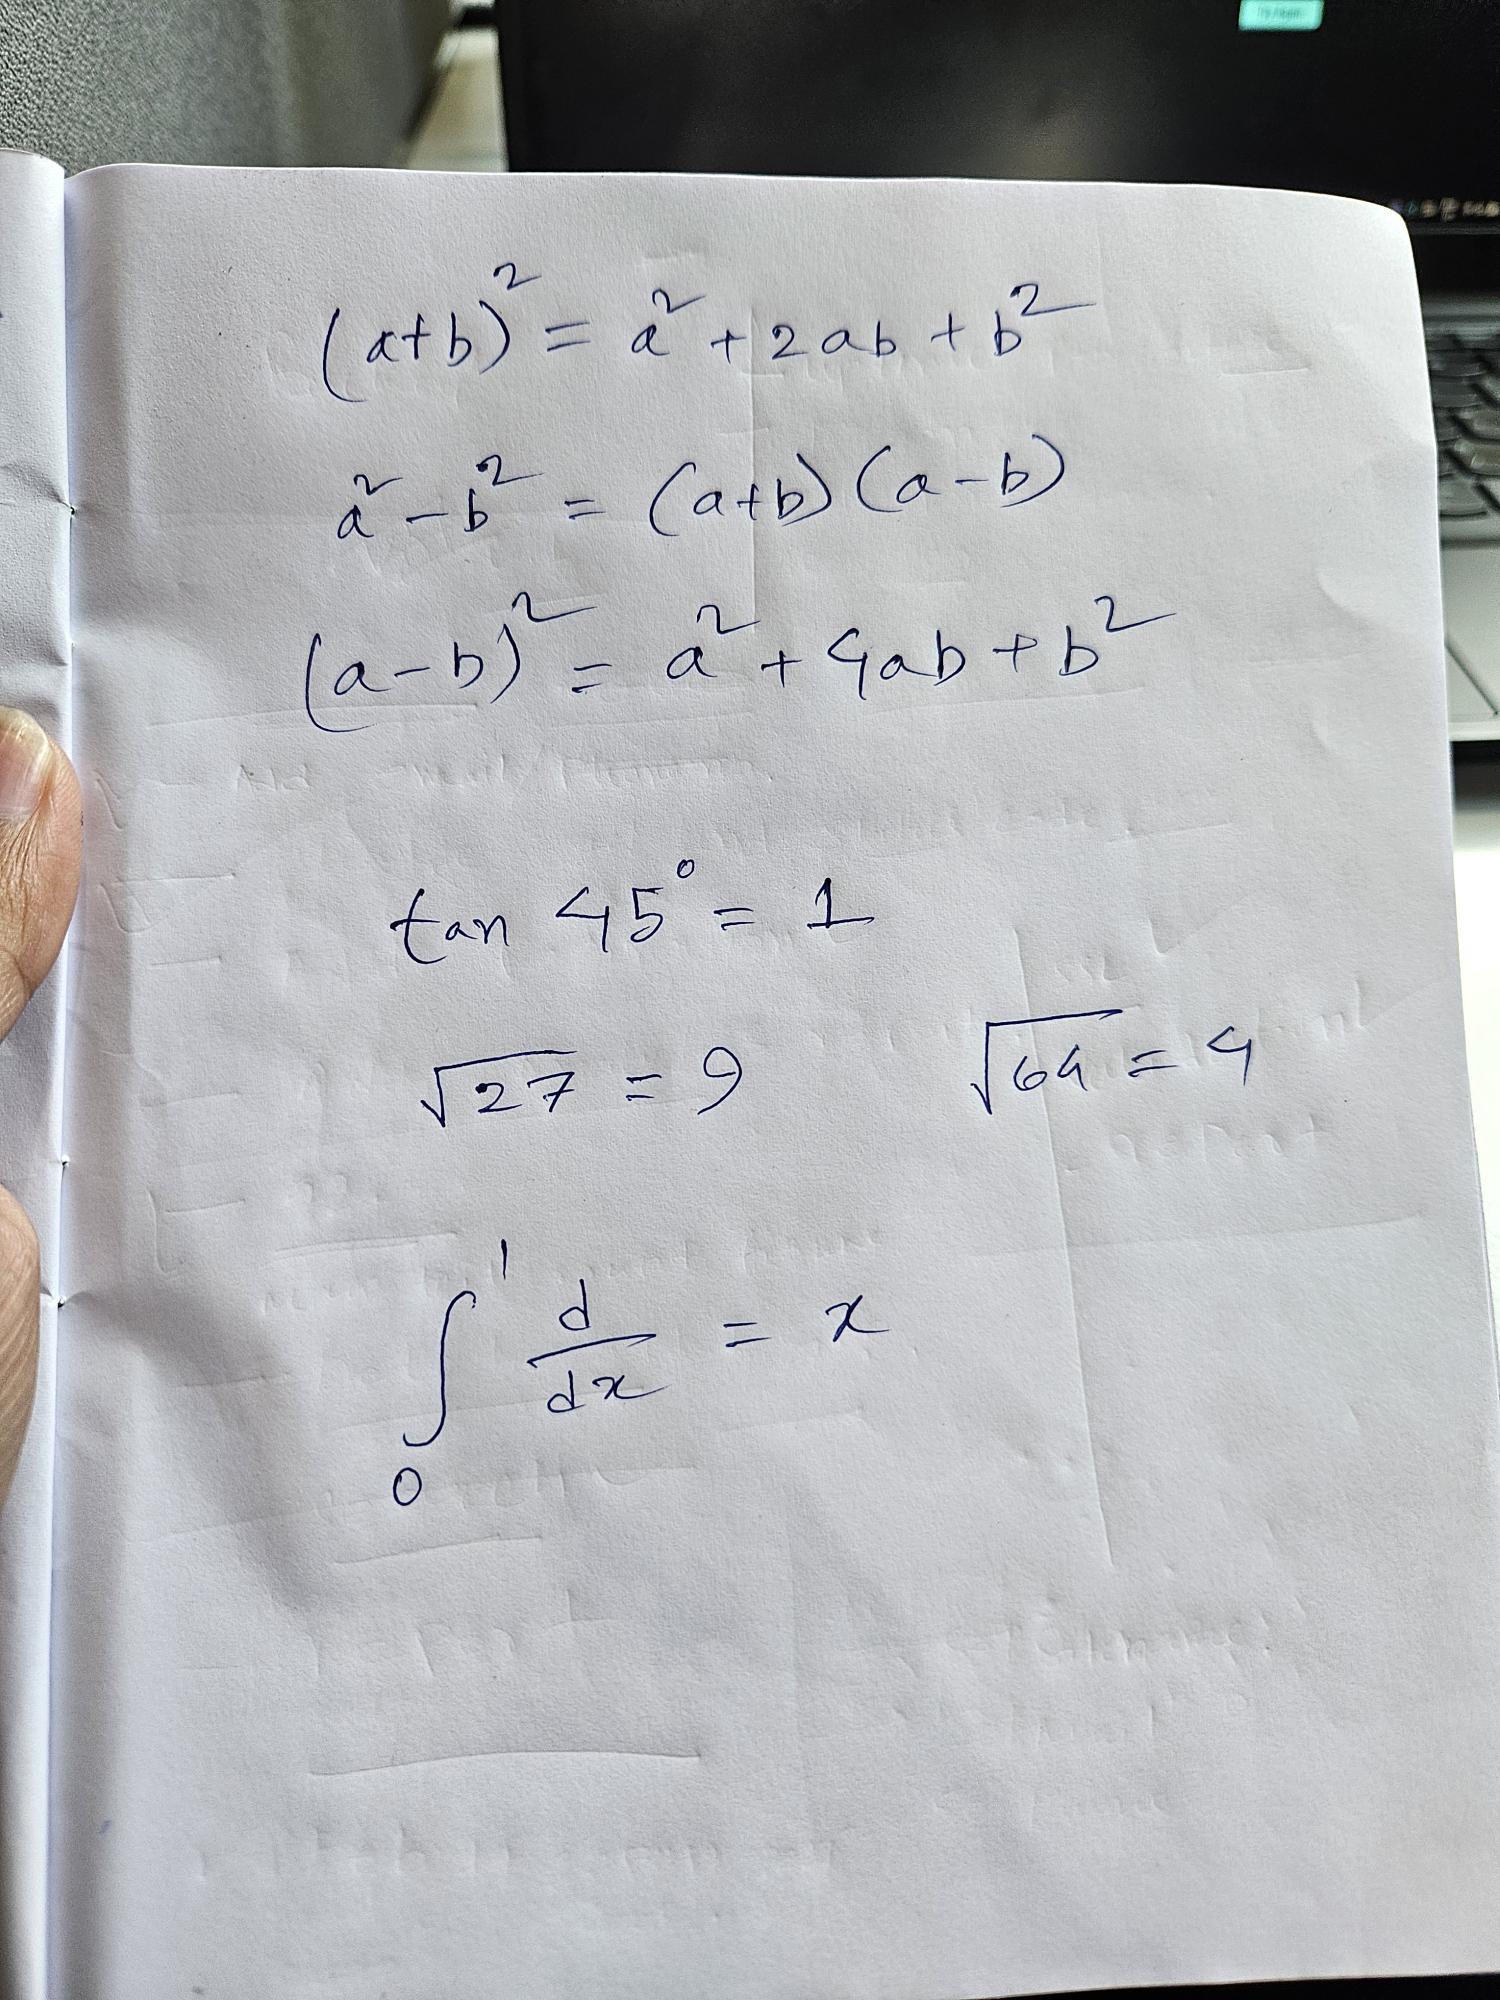 (a+b)² = a² + 2ab + b²
a² - b² = (a+b) (a-b)
(a-b)² = a² + 4ab + b²
tan 45° = 1
√27 = 9 √64 = 4
∫₀¹ d/dx = x